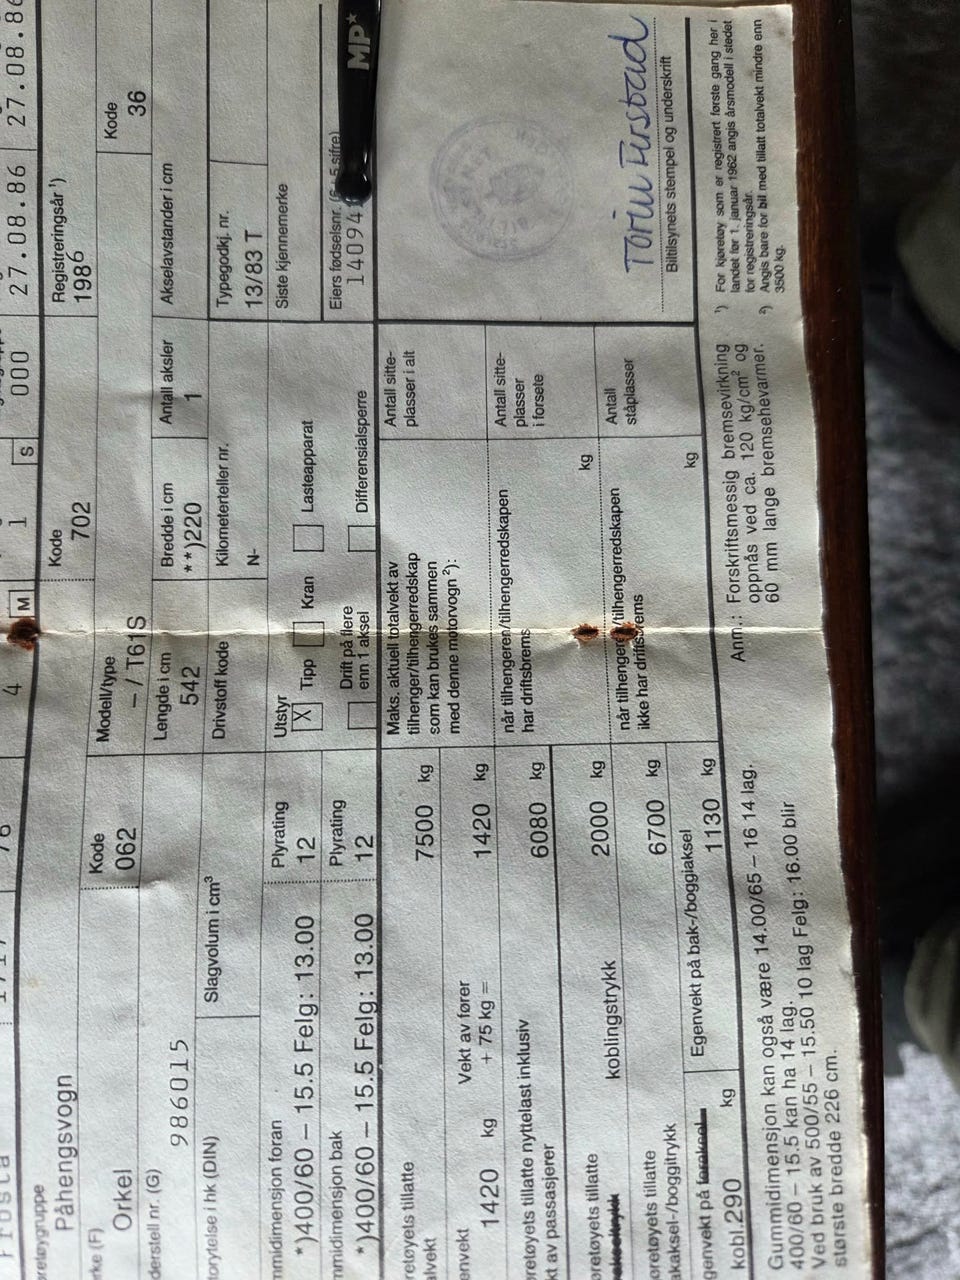 27.08.86 27.08.86
4 M 1 S 000
Påhengsvogn
Kode
702
Registreringsår ¹)
1986
Orkel
Kode
062
Modell/type
– / T61S
Kode
36
986015
Lengde i cm
542
Bredde i cm
**)220
Antall aksler
1
Akselavstander i cm
Slagvolum i cm³
Drivstoff kode
Kilometerteller nr.
N-
Typegodkj. nr.
13/83 T
foran
*)400/60 – 15.5 Felg: 13.00
Plyrating
12
Utstyr
X Tipp
Kran
Lasteapparat
Siste kjennemerke
bak
*)400/60 – 15.5 Felg: 13.00
Plyrating
12
Drift på flere
enn 1 aksel
Differensialsperre
Eiers fødselsnr.
MP
tillatte
7500 kg
1420 kg
Vekt av fører
+ 75 kg =
1420 kg
tillatte nyttelast inklusiv
av passasjerer
6080 kg
tillatte
koblingstrykk
2000 kg
tillatte
6700 kg
på
kobl.290 kg
Egenvekt på bak-/boggiaksel
1130 kg
Maks. aktuell totalvekt av
tilhenger/tilhengerredskap
som kan brukes sammen
med denne motorvogn ²):
når tilhengeren/tilhengerredskapen
har driftsbrems
kg
når tilhengeren/tilhengerredskapen
ikke har driftsbrems
kg
Antall sitte-
plasser i alt
Antall sitte-
plasser
i forsete
Antall
ståplasser
Biltilsynets stempel og underskrift
Gummidimensjon kan også være 14.00/65 – 16 14 lag.
400/60 – 15.5 kan ha 14 lag.
Ved bruk av 500/55 – 15.50 10 lag Felg: 16.00 blir
største bredde 226 cm.
Anm.: Forskriftsmessig bremsevirkning
oppnås ved ca. 120 kg/cm² og
60 mm lange bremsehevarmer.
¹) For kjøretøy som er registrert første gang her i
landet før 1. januar 1962 angis årsmodell i stedet
for registreringsår.
²) Angis bare for bil med tillatt totalvekt mindre enn
3500 kg.